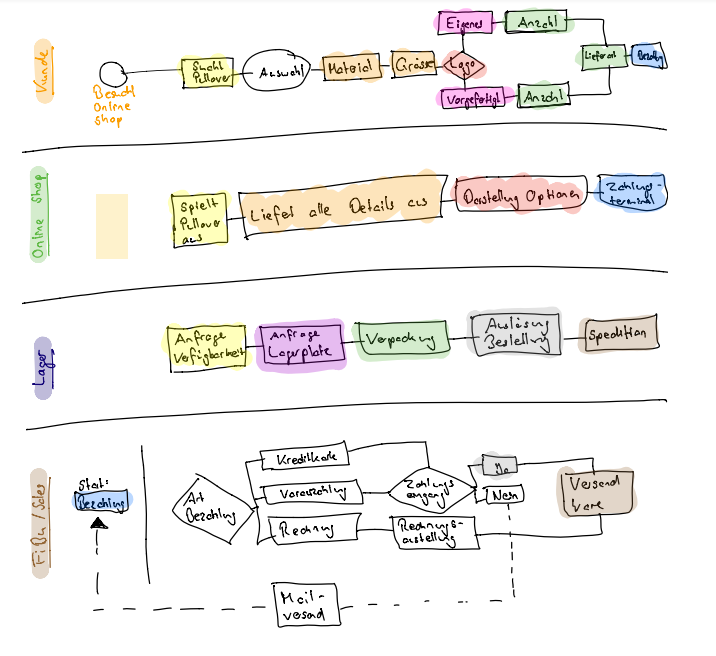 Kunde
Besucht
Online
Shop
Sucht
Pullover
Auswahl
Material
Grösse
Logo
Eigenes
Anzahl
Vorgefertigt
Anzahl
Lieferant
Bezahlung
Online Shop
Spielt
Pullover
aus
Liefet alle Details aus
Darstellung Optionen
Zahlungs-
terminal
Lager
Anfrage
Verfügbarkeit
Anfrage
Lagerplatz
Verpackung
Auslösung
Bestellung
Spedition
Fibu/Sales
Start:
Bezahlung
Art
Bezahlung
Kreditkarte
Vorauszahlung
Rechnung
Zahlungs
eingang
Rechnungs-
austellung
Ja
Nein
Versand
Ware
Mail-
versand